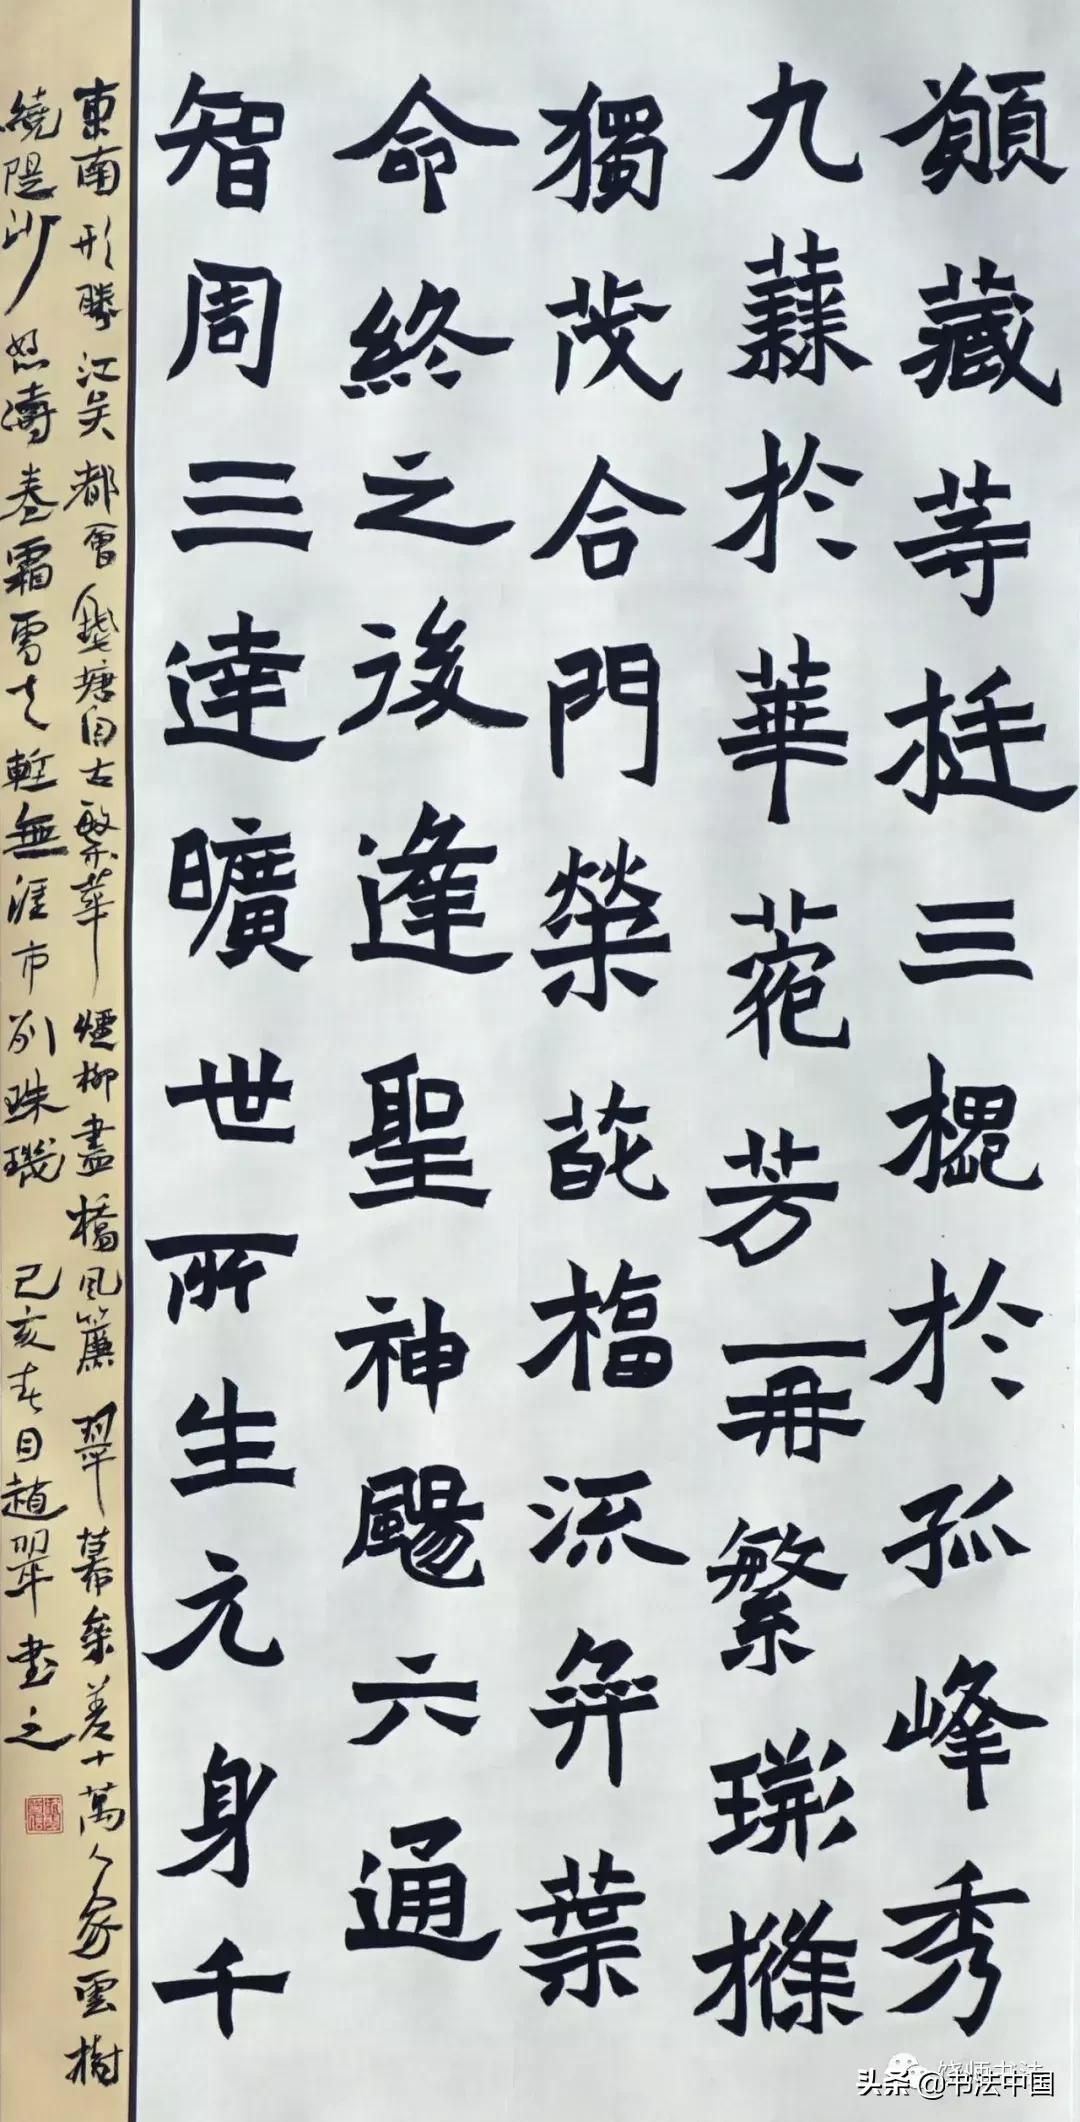 願藏等挺三槐於孤峰秀
九蕀於華菀芳一冊繁璣條
獨茂合門榮葩福流弈葉
命終之後逢聖神颺六通
智周三達曠世所生元身千
東南形勝江吴都會錢塘自古繁華煙柳畫橋風簾翠幕參差十萬人家雲樹
繞隄沙怒濤卷霜雪天塹無涯市列珠璣 己亥春日趙翠書之
头条 @书法中国
饶师书法